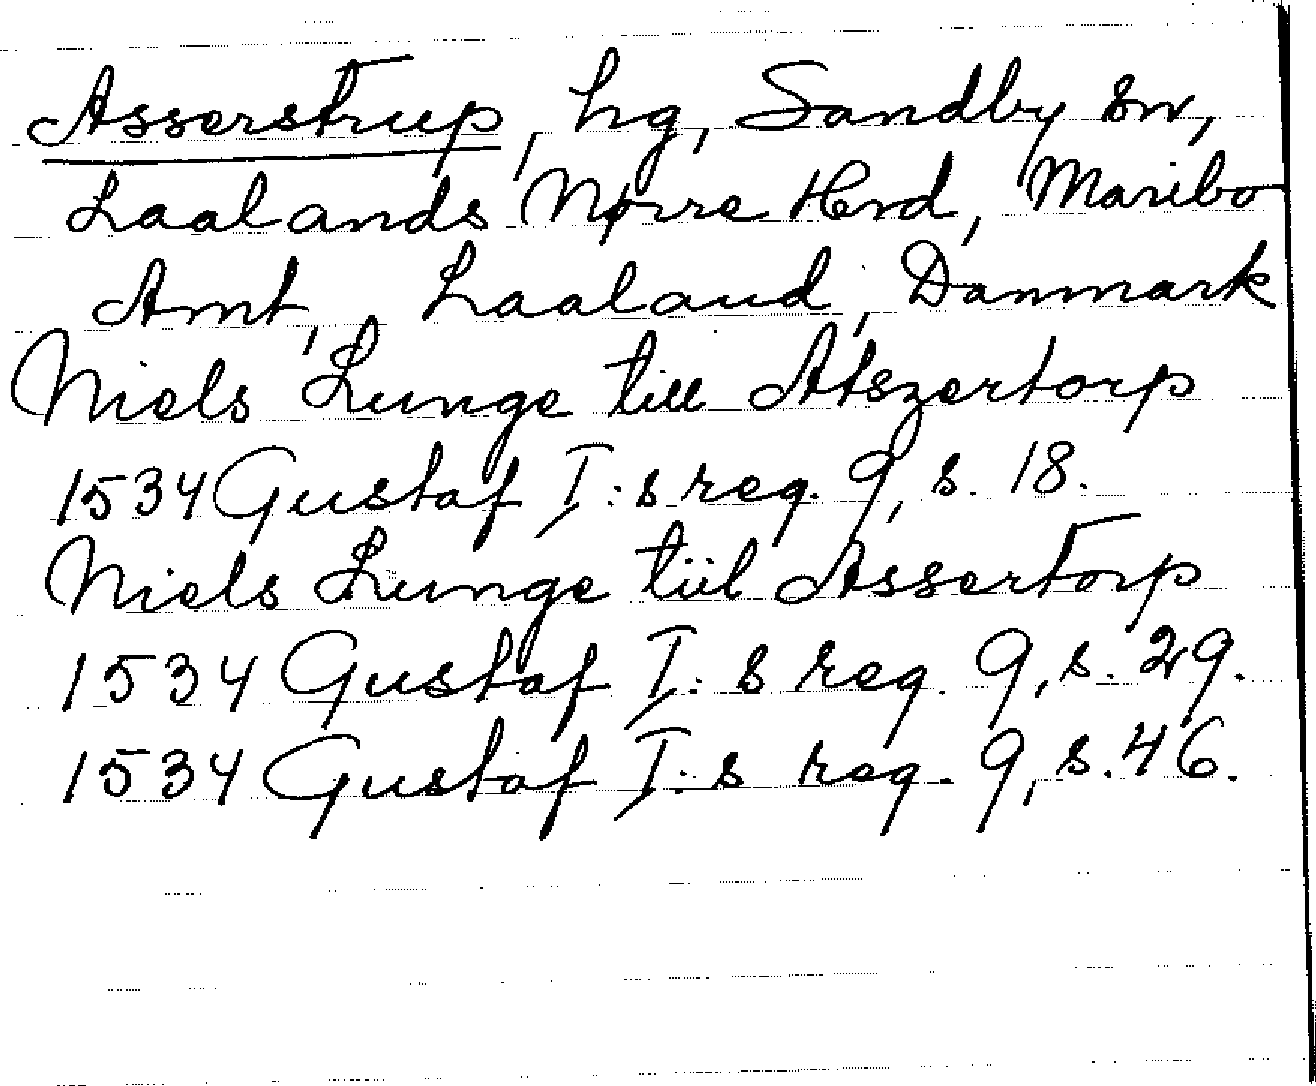 Asserstrup, hg, Sandby sn,
Laalands Nørre Hrd, Maribo
Amt, Laaland, Danmark
Niels Lunge till Atszertorp
1534 Gustaf I:s reg. 9, s. 18.
Niels Lunge tiil Assertorp
1534 Gustaf I:s reg. 9, s. 29.
1534 Gustaf I:s reg. 9, s. 46.